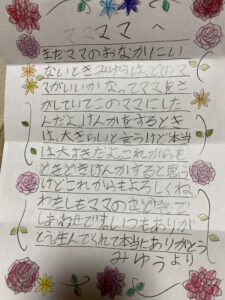 ママママへ
まだママのおなかにい
ないときみゆうは、どのマ
マがいいかなってママをさ
がしていてこのママにした
んだよ。けんかをするとき
は、大きらいと言うけど本当
は大すきだよ。これからも
ときどきけんかすると思う
けどこれからもよろしくね。
わたしもママの子どもで
しあわせです。いつもありが
とう。生んでくれて本当にありがとう
みゆうより